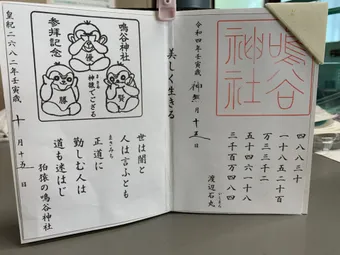 鳴谷
神社
令和四年壬寅歳 神無月十五日
四八八三十
一十八五二十百
万三三千二
五十四六一十八
三千百万四八四
渡辺石丸
美しく生きる
鳴谷神社
参拝記念
優
賢
勝
神猿でござる
皇紀二六八二年壬寅歳 十月十五日
世は闇と
人は言ふとも
まさみち
正道に
勤しむ人は
道も迷はじ
狛猿の鳴谷神社